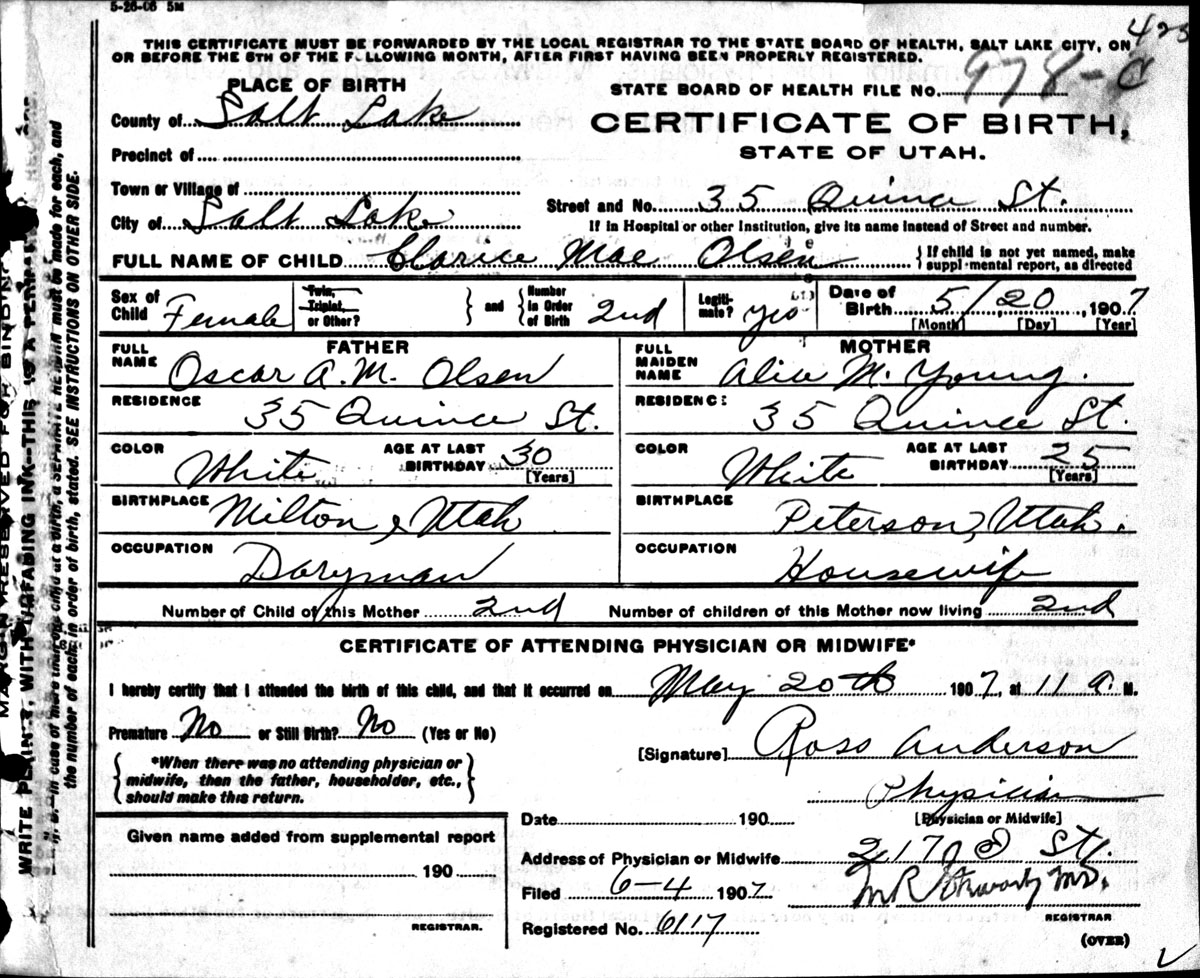 5-26-06 5M
423
THIS CERTIFICATE MUST BE FORWARDED BY THE LOCAL REGISTRAR TO THE STATE BOARD OF HEALTH, SALT LAKE CITY, ON
OR BEFORE THE 5TH OF THE FOLLOWING MONTH, AFTER FIRST HAVING BEEN PROPERLY REGISTERED.
PLACE OF BIRTH
STATE BOARD OF HEALTH FILE NO. 978-C
County of Salt Lake
CERTIFICATE OF BIRTH,
Precinct of
STATE OF UTAH.
Town or Village of
City of Salt Lake
Street and No. 35 Quince St.
If in Hospital or other Institution, give its name instead of Street and number.
FULL NAME OF CHILD Clarice Mae Olsen
If child is not yet named, make
supplemental report, as directed
Sex of Child Female
Twin, Triplet, or Other?
and Number in Order of Birth 2nd
Legitimate? yes
Date of Birth 5/20, 1907
[Month] [Day] [Year]
FATHER
FULL NAME Oscar A. M. Olsen
RESIDENCE 35 Quince St.
COLOR White
AGE AT LAST BIRTHDAY 30
[Years]
BIRTHPLACE Milton, Utah
OCCUPATION Daryman
MOTHER
FULL MAIDEN NAME Alice M. Young.
RESIDENCE 35 Quince St.
COLOR White
AGE AT LAST BIRTHDAY 25
[Years]
BIRTHPLACE Peterson, Utah.
OCCUPATION Housewife
Number of Child of this Mother 2nd Number of children of this Mother now living 2nd
CERTIFICATE OF ATTENDING PHYSICIAN OR MIDWIFE*
I hereby certify that I attended the birth of this child, and that it occurred on May 20th 1907, at 11 a. M.
Premature No or Still Birth? No (Yes or No)
[Signature] Ross Anderson
*When there was no attending physician or
midwife, then the father, householder, etc.,
should make this return.
Physician
[Physician or Midwife]
Date 190
Given name added from supplemental report
190
REGISTRAR.
Address of Physician or Midwife St.
Filed 6-4 1907
M R MD.
REGISTRAR
Registered No. 6117
(OVER)
MARGIN RESERVED FOR BINDING
WRITE PLAINLY, WITH UNFADING INK—THIS IS A PERMANENT RECORD.
N. B.—In case of more than one child at a birth, a SEPARATE RETURN must be made for each, and
the number of each, in order of birth, stated. SEE INSTRUCTIONS ON OTHER SIDE.